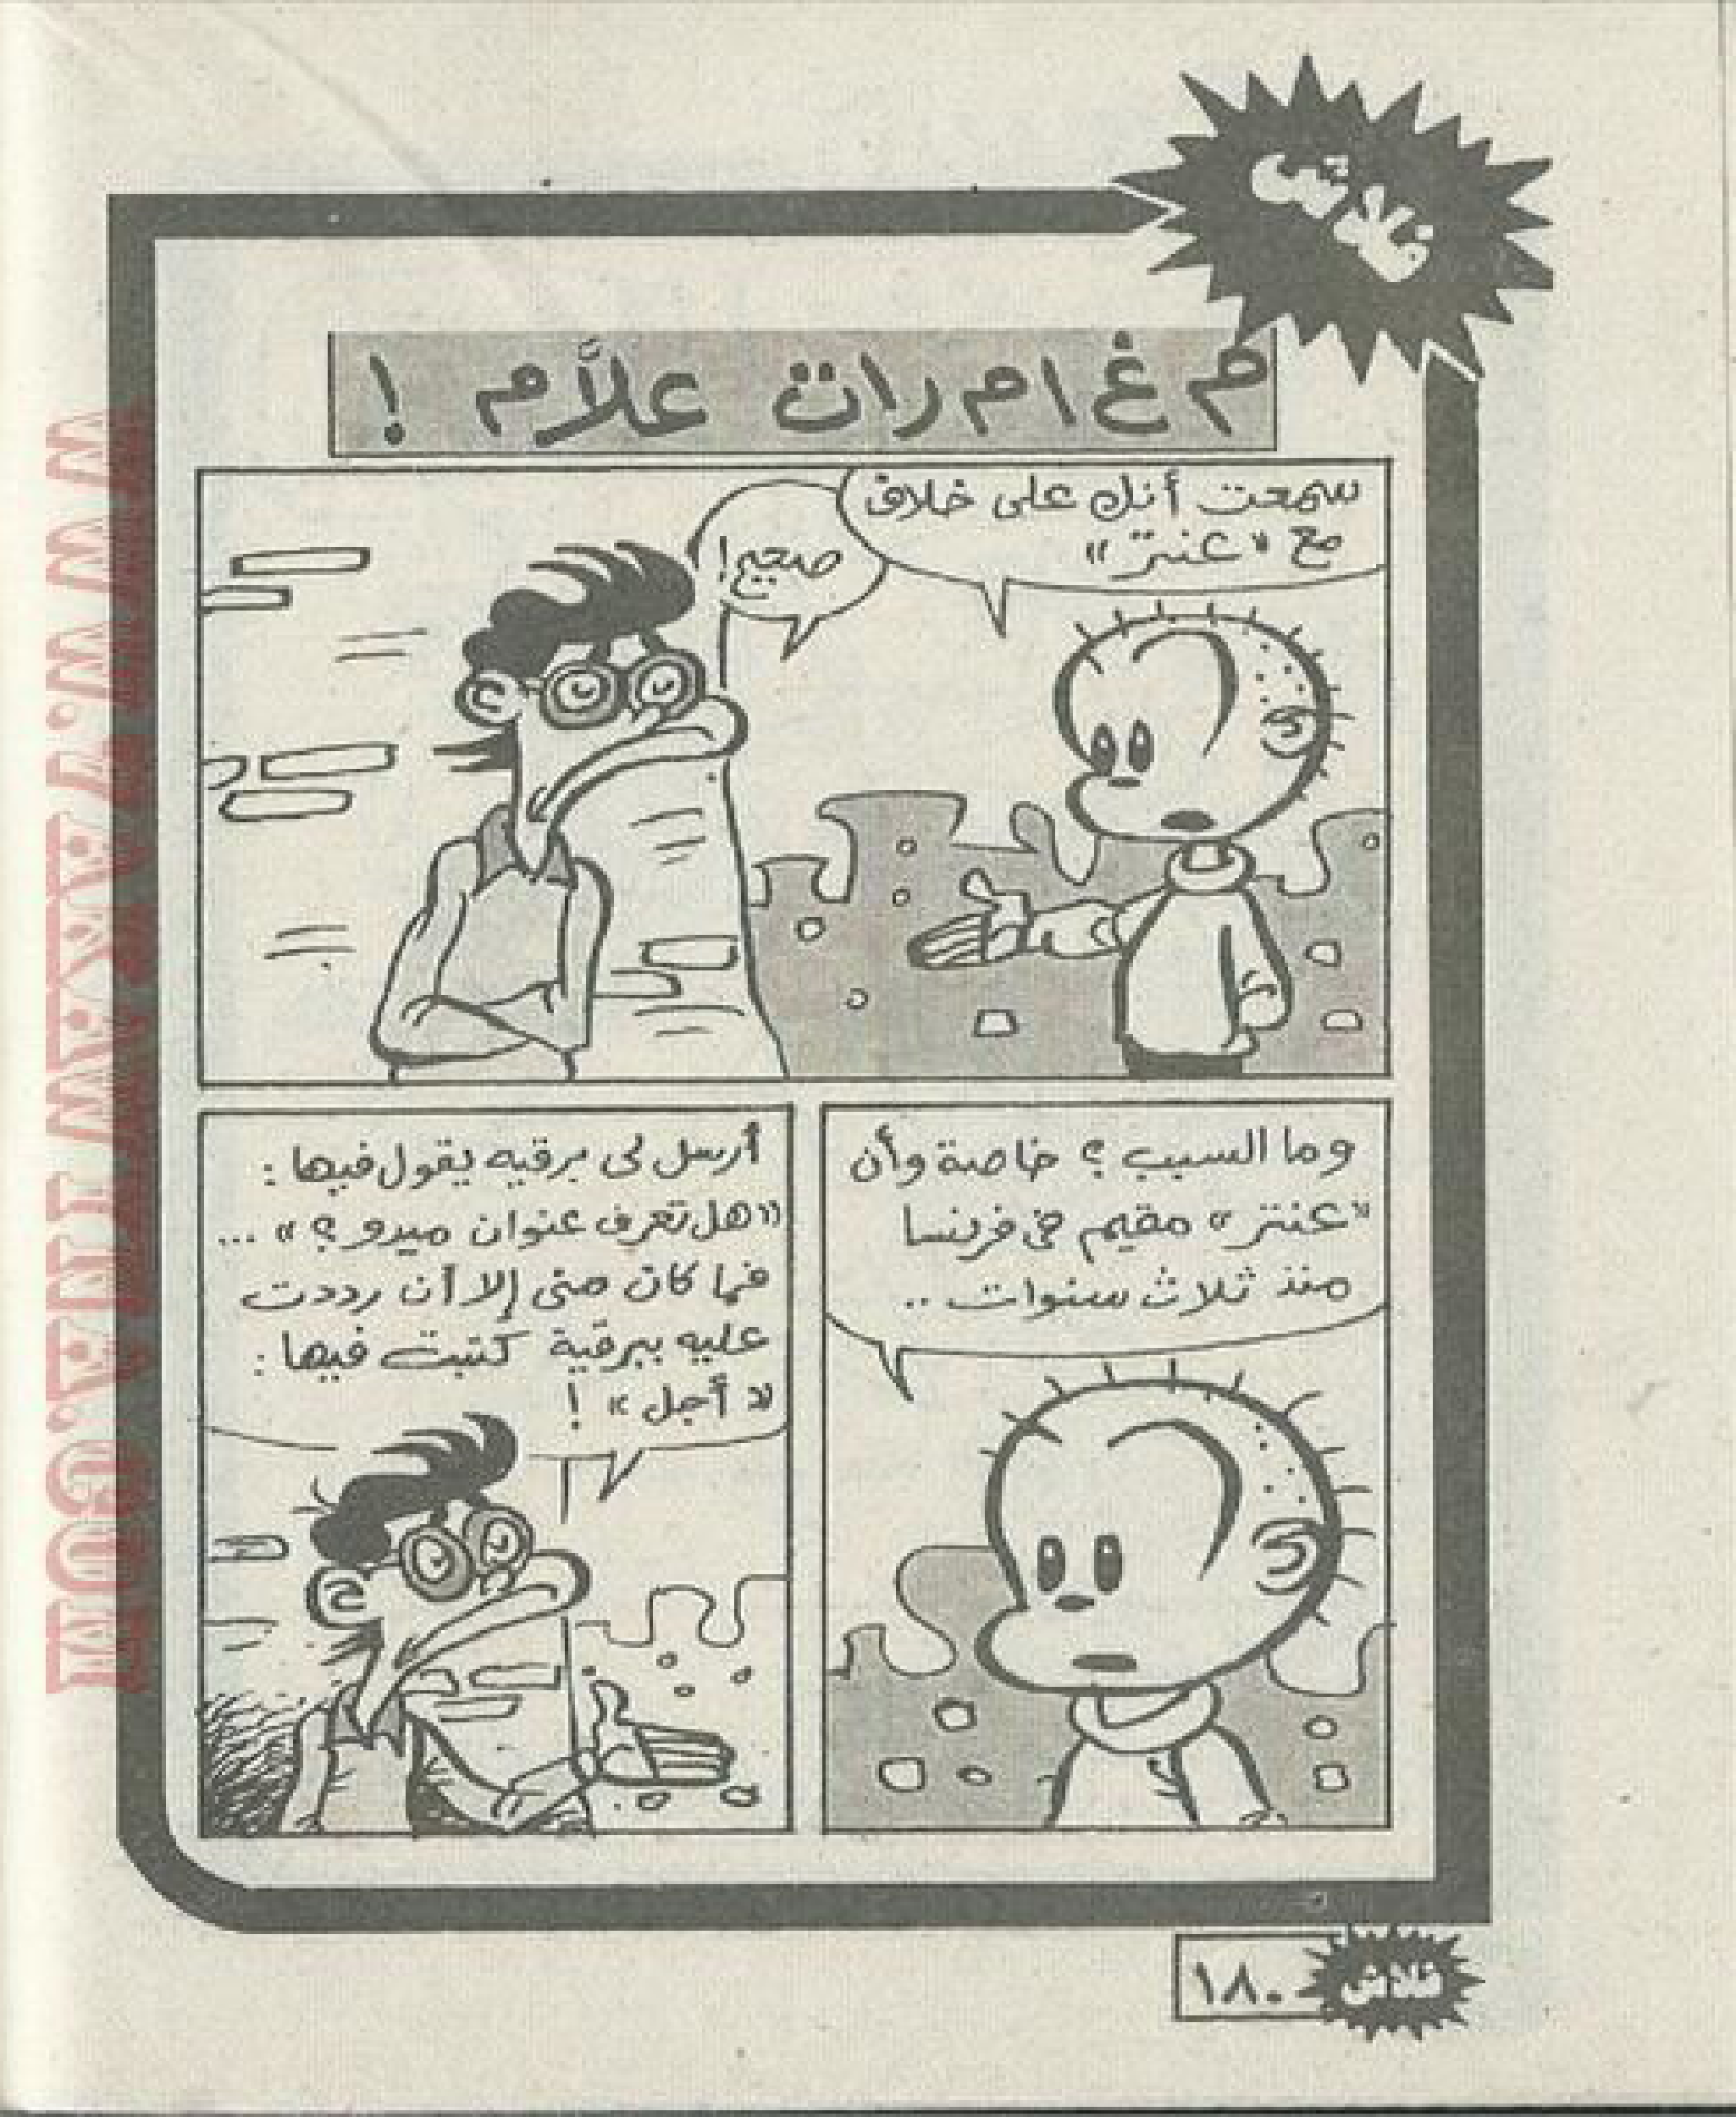 فلاش
م غ ا م ر ا ت علاَّم !
سمعت أنك على خلاف
مع «عنتر»
صحيح!
وما السبب ؟ خاصة وأن
«عنتر» مقيم فى فرنسا
منذ ثلاث سنوات ..
أرسل لى برقيه يقول فيها :
«هل تعرف عنوان ميدو ؟» ...
فما كان منى إلا أن رددت
عليه ببرقية كتبت فيها :
«أجل» !
فلاش
١٨٠